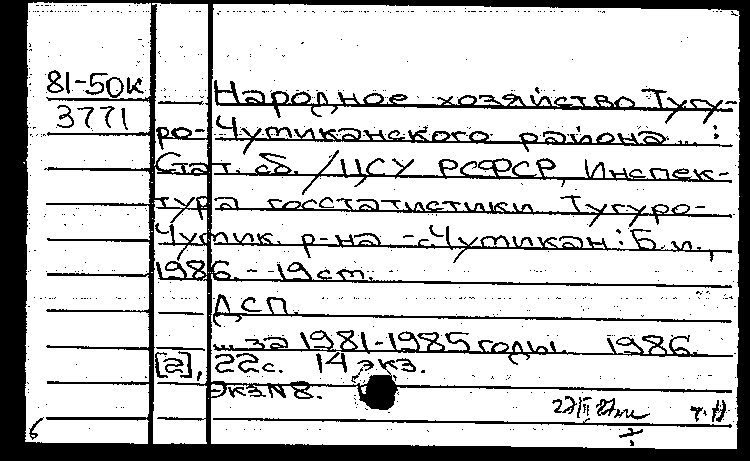 81-50к
3771
Народное хозяйство Тугу-
ро-Чумиканского района... :
Стат. сб. / ЦСУ РСФСР, Инспек-
тура госстатистики Тугуро-
Чумик. р-на -с.Чумикан: Б.и.,
1986. - 19 см.
ДСП.
... за 1981-1985 годы. 1986.
[2], 22с. 14 экз.
Экз.N8.
6